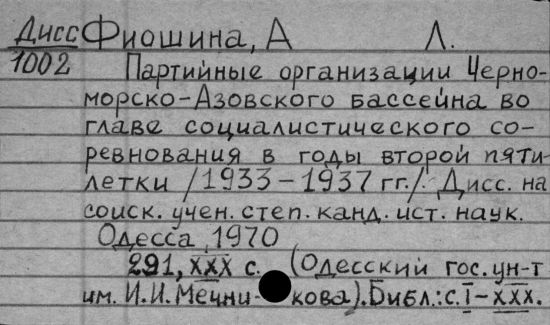 Дисс Фиошина, А Л.
1002 Партийные организации Черно-
морско-Азовского бассейна во
главе социалистического со-
ревнования в годы второй пяти
летки /1933-1937 гг./. Дисс. на
соиск. учен. степ. канд. ист. наук.
Одесса, 1970
291, XXX с. (Одесский гос. ун-т
им. И.И. Мечни-кова). Библ.: с. I-XXX.